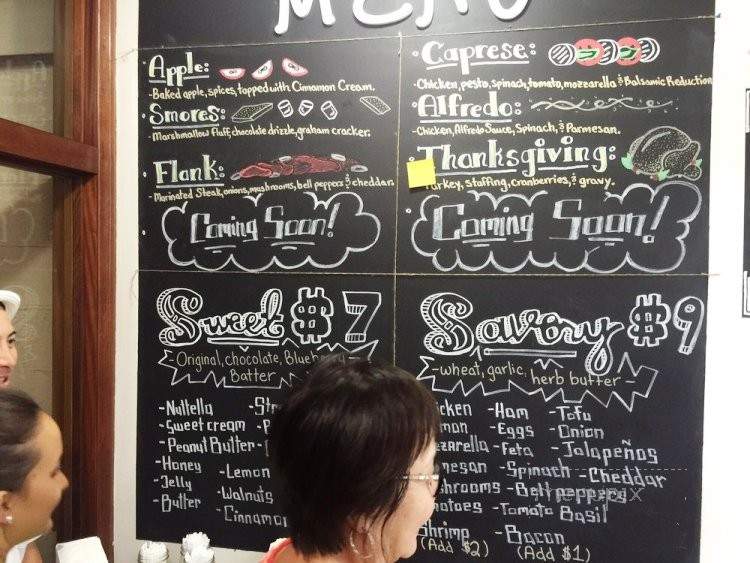 MENU
Apple:
-Baked apple, spices, topped with Cinnamon Cream.
Smores:
-Marshmallow fluff, chocolate drizzle, graham cracker.
Flank:
-Marinated Steak, onions, mushrooms, bell peppers & cheddar.
Coming Soon!
Caprese:
-Chicken, pesto, spinach, tomato, mozzarella & Balsamic Reduction
Alfredo:
-Chicken, Alfredo Sauce, Spinach, & Parmesan.
Thanksgiving:
Turkey, stuffing, cranberries, & gravy.
Coming Soon!
Sweet $7
-Original, chocolate, Blueberry-
Batter
-Nutella
-Sweet cream
-Peanut Butter
-Honey
-Jelly
-Butter
-Lemon
-Walnuts
-Cinnamon
Savory $9
-wheat, garlic, herb butter-
icken
mon
ezzarella
mesan
shrooms
matoes
Shrimp
(Add $2)
-Ham
-Eggs
-Feta
-Spinach
-Bell peppers
-Tomato Basil
-Bacon
(Add $1)
-Tofu
-Onion
-Jalapeños
-Cheddar
menupix